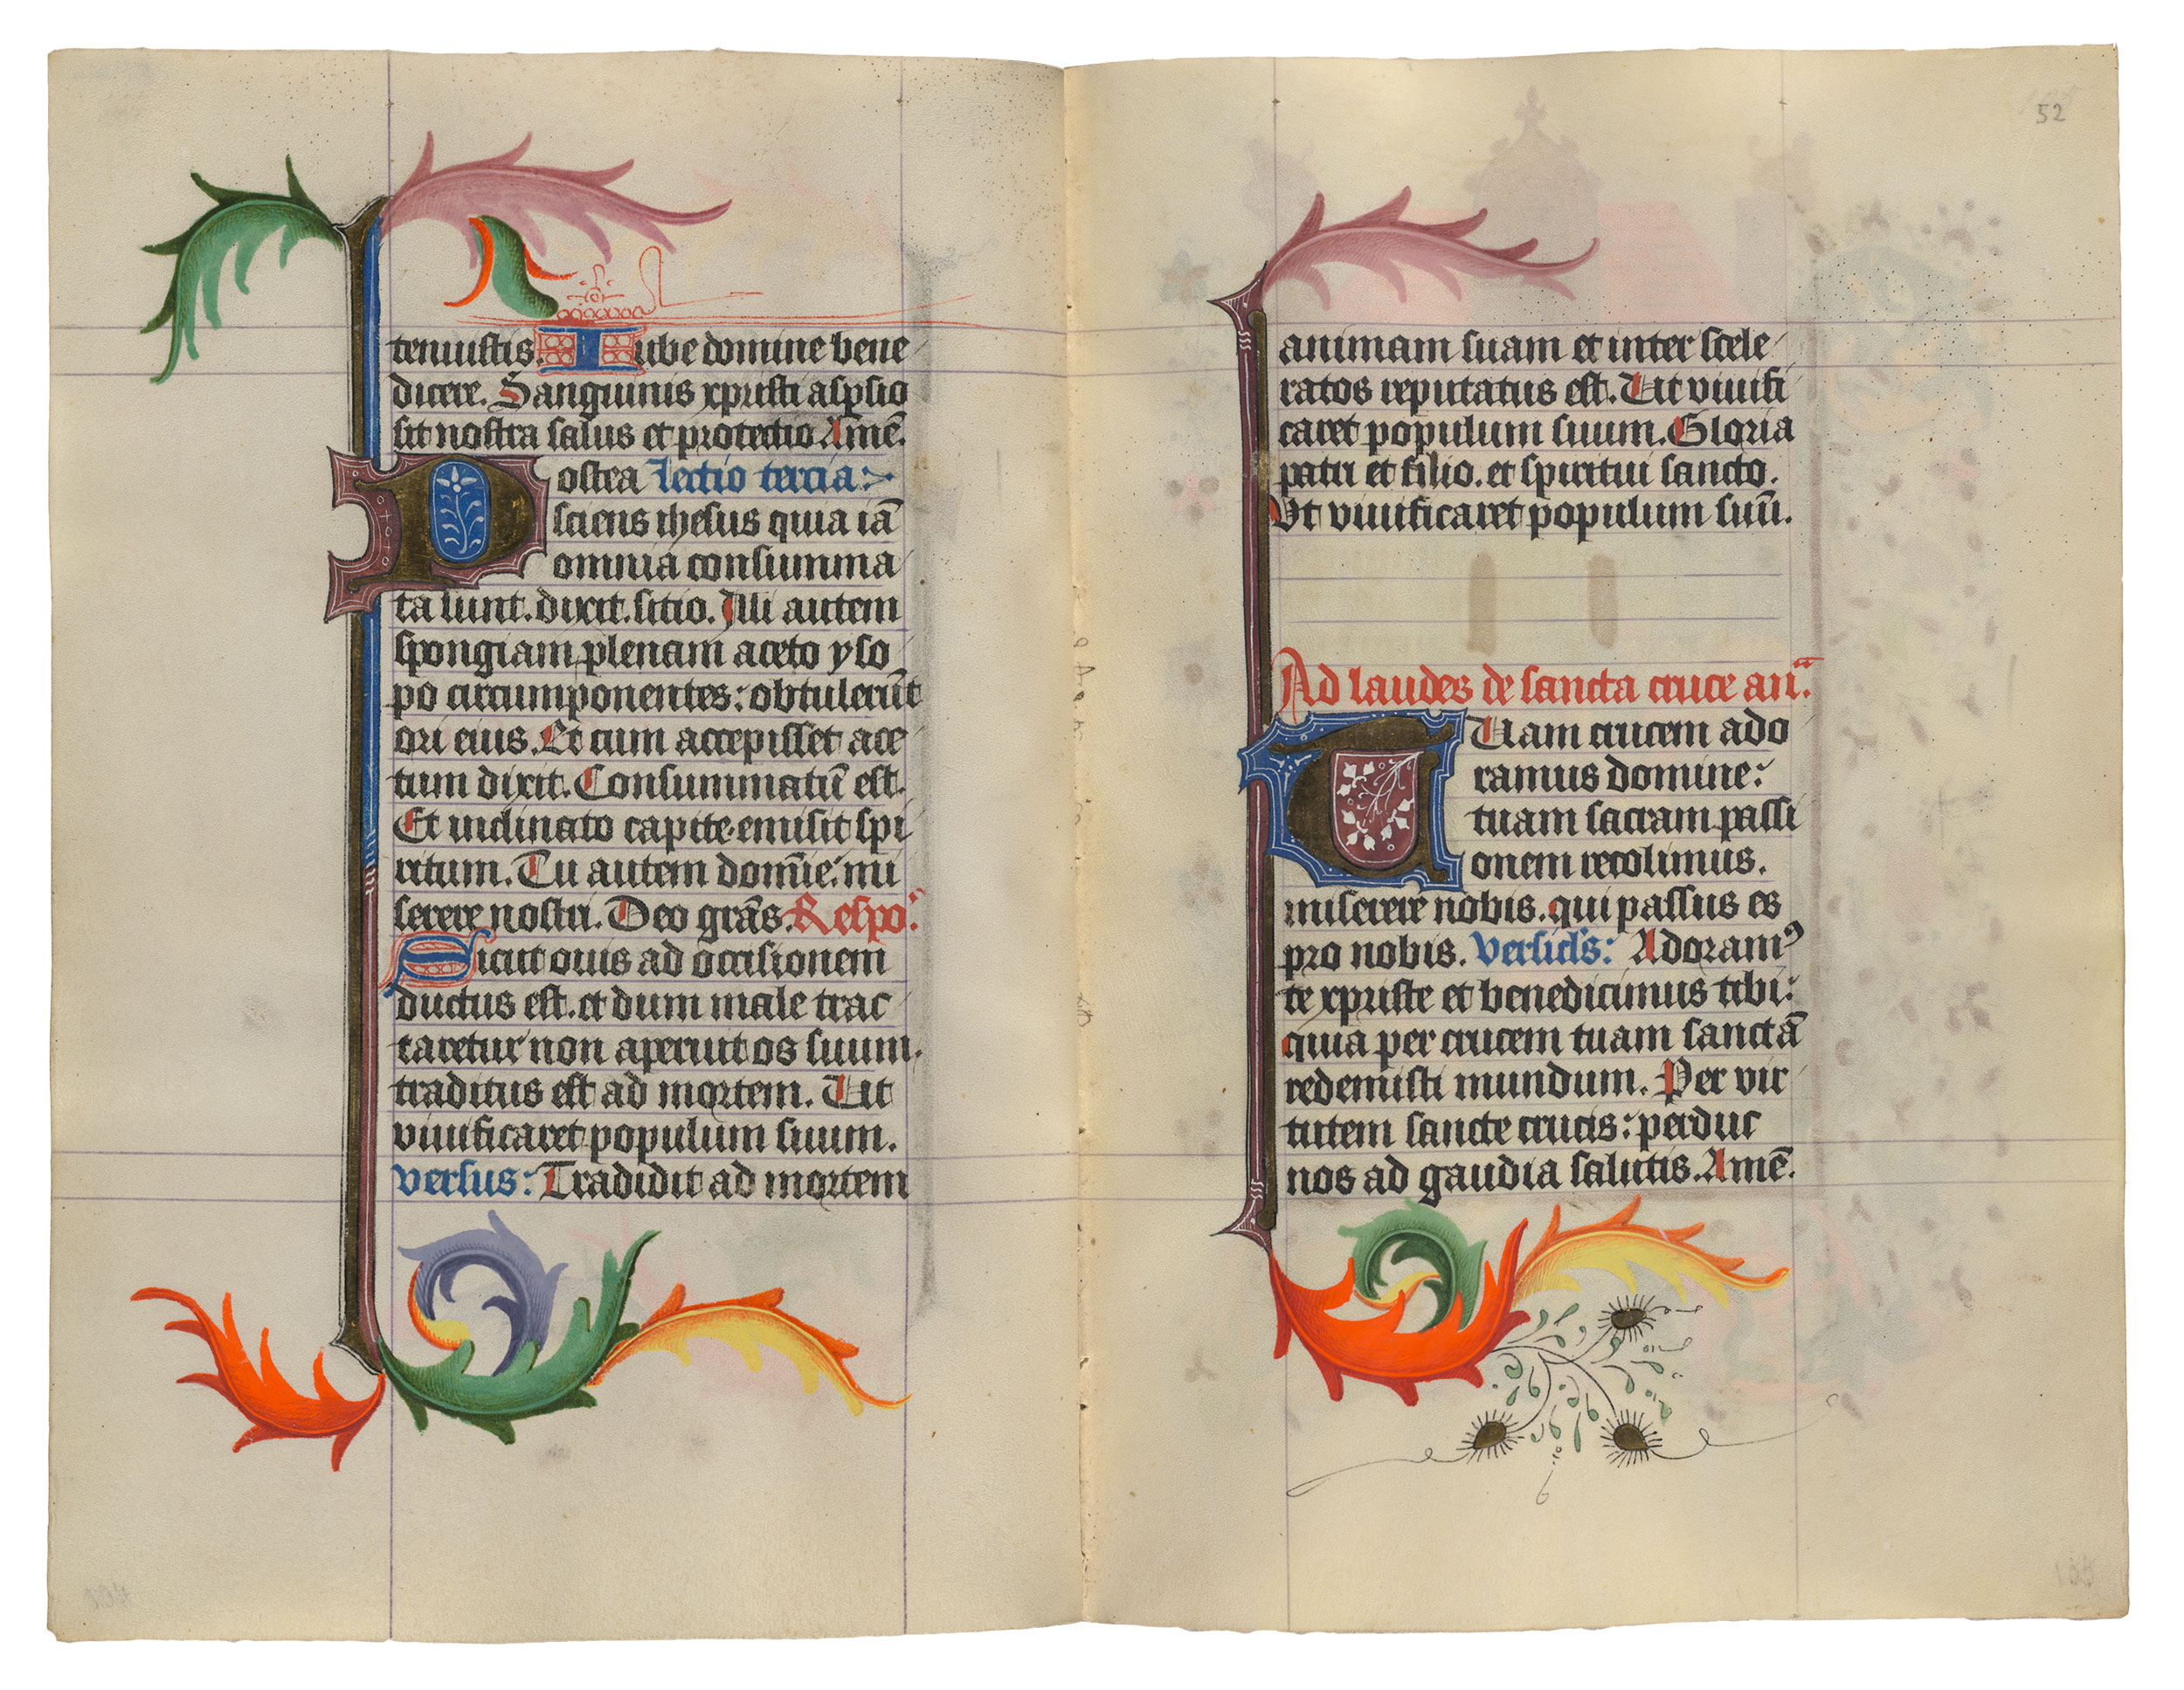 tenuistis. Iube domine bene
dicere. Sanguinis xpristi aspsio
sit nostra salus et protectio Amē.
Postea lectio tercia:
sciens ihesus quia iā
omnia consumma
ta sunt. dixit. sitio. Illi autem
spongiam plenam aceto yso
po circumponentes: obtulerūt
ori eius. Et cum accepisset ace
tum dixit. Consummatū est.
Et inclinato capite. emisit spi
ritum. Tu autem domīe: mi
serere nostri. Deo grās. Respo.
Sicut ouis ad occisionem
ductus est. et dum male trac
taretur non aperuit os suum.
traditus est ad mortem. Ut
viuificaret populum suum.
versus: Tradidit ad mortem
52
animam suam et inter scele
ratos reputatus est. Ut viuifi
caret populum suum. Gloria
patri et filio. et spiritui sancto.
Vt viuificaret populum suū.
Ad laudes de sancta cruce an.
TUam crucem ado
ramus domine:
tuam sacram passi
onem recolimus.
miserere nobis. qui passus es
pro nobis. versicl's: Adoramꝰ
te xpriste et benedicimus tibi:
quia per crucem tuam sanctā
redemisti mundum. Per vir
tutem sancte crucis: perduc
nos ad gaudia salutis. Amē.